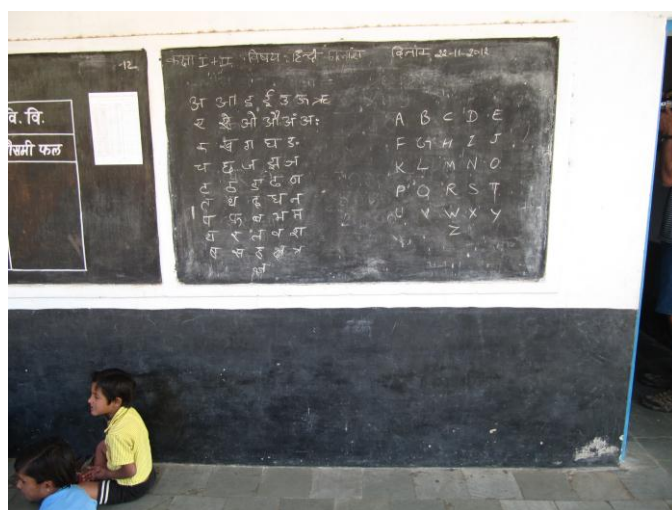 -12
वि. वि.
मौसमी फल
कक्षा I+II विषय : हिन्दी दिनांक 22-11-2012
अ आ इ ई उ ऊ ऋ
ए ऐ ओ औ अं अः
क ख ग घ ङ
च छ ज झ ञ
ट ठ ड ढ ण
त थ द ध न
प फ ब भ म
य र ल व श
ष स ह क्ष त्र
ज्ञ
A B C D E
F G H I J
K L M N O
P Q R S T
U V W X Y
Z